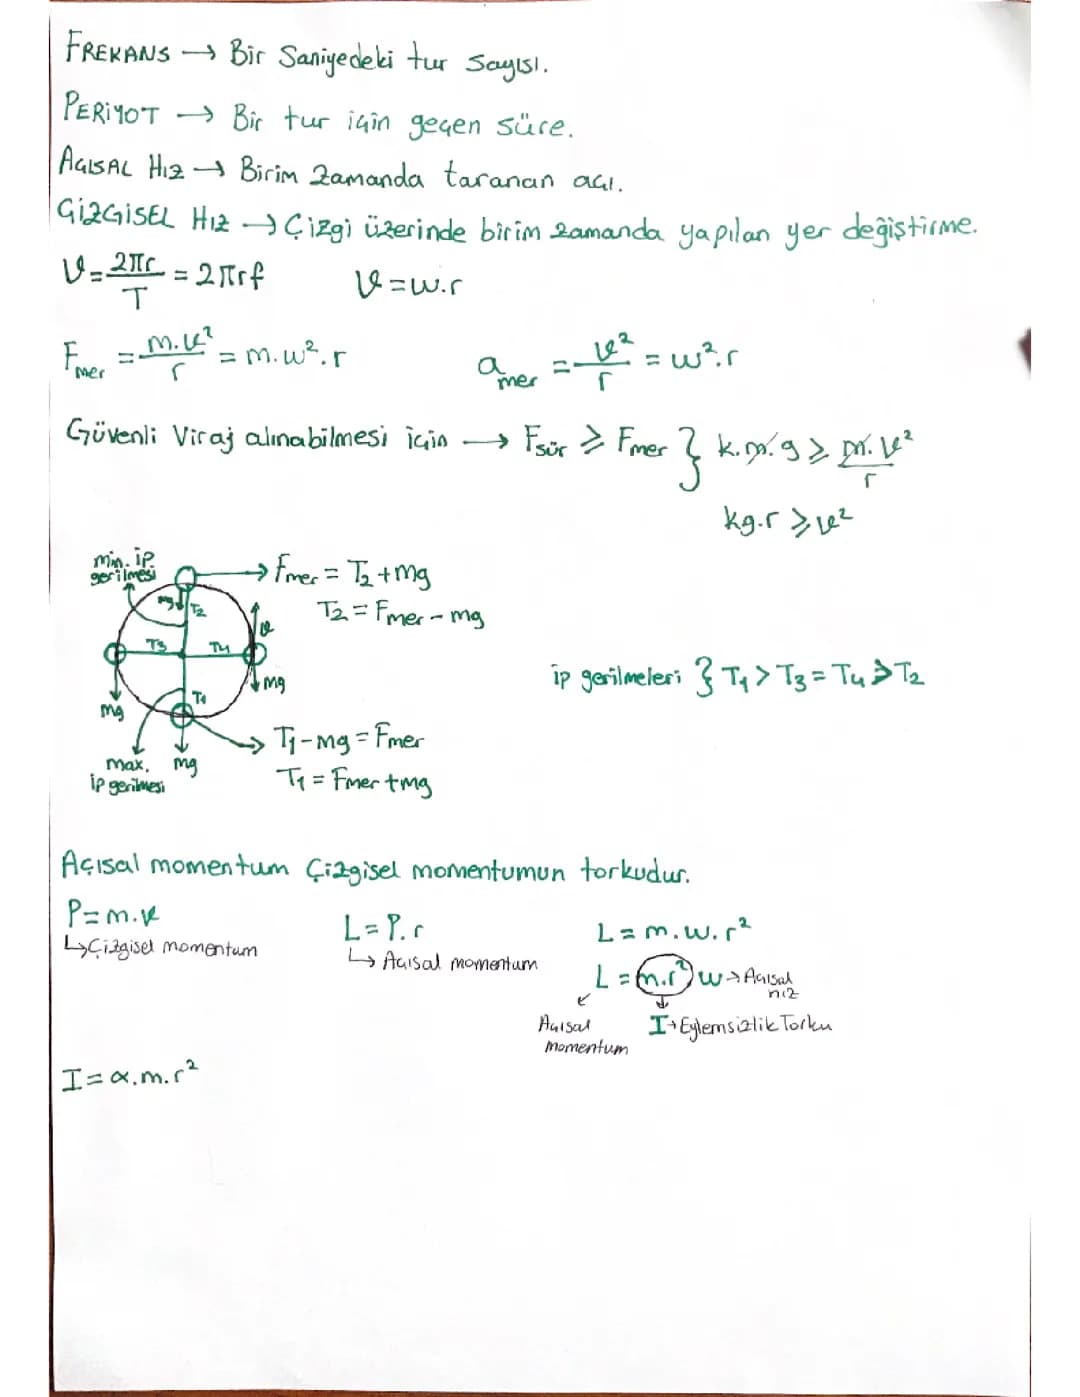 FREKANS → Bir Saniyedeki tur sayısı.
PERİYOT → Bir tur için geçen süre.
AÇISAL HIZ → Birim zamanda taranan açı.
ÇİZGİSEL HIZ → Çizgi üzerinde birim zamanda yapılan yer değiştirme.
V = 2πr/T = 2πrf V = w.r
Fmer = m.V²/r = m.w².r amer = V²/r = w².r
Güvenli Viraj alınabilmesi için → Fsür ≥ Fmer } k.m.g ≥ m.V²/r
kg.r ≥ V²
min. ip gerilmesi
→ Fmer = T2 + mg
T2 = Fmer - mg
mg T2
V
T3 T4
mg
mg
T1
ip gerilmeleri } T1 > T3 = T4 > T2
→ T1 - mg = Fmer
T1 = Fmer + mg
max. ip gerilmesi
mg
Açısal momentum Çizgisel momentumun torkudur.
P = m.V L = P.r L = m.w.r²
↳ Çizgisel momentum ↳ Açısal momentum L = m.r² w → Açısal hız
Açısal momentum I → Eylemsizlik Torku
I = α.m.r²